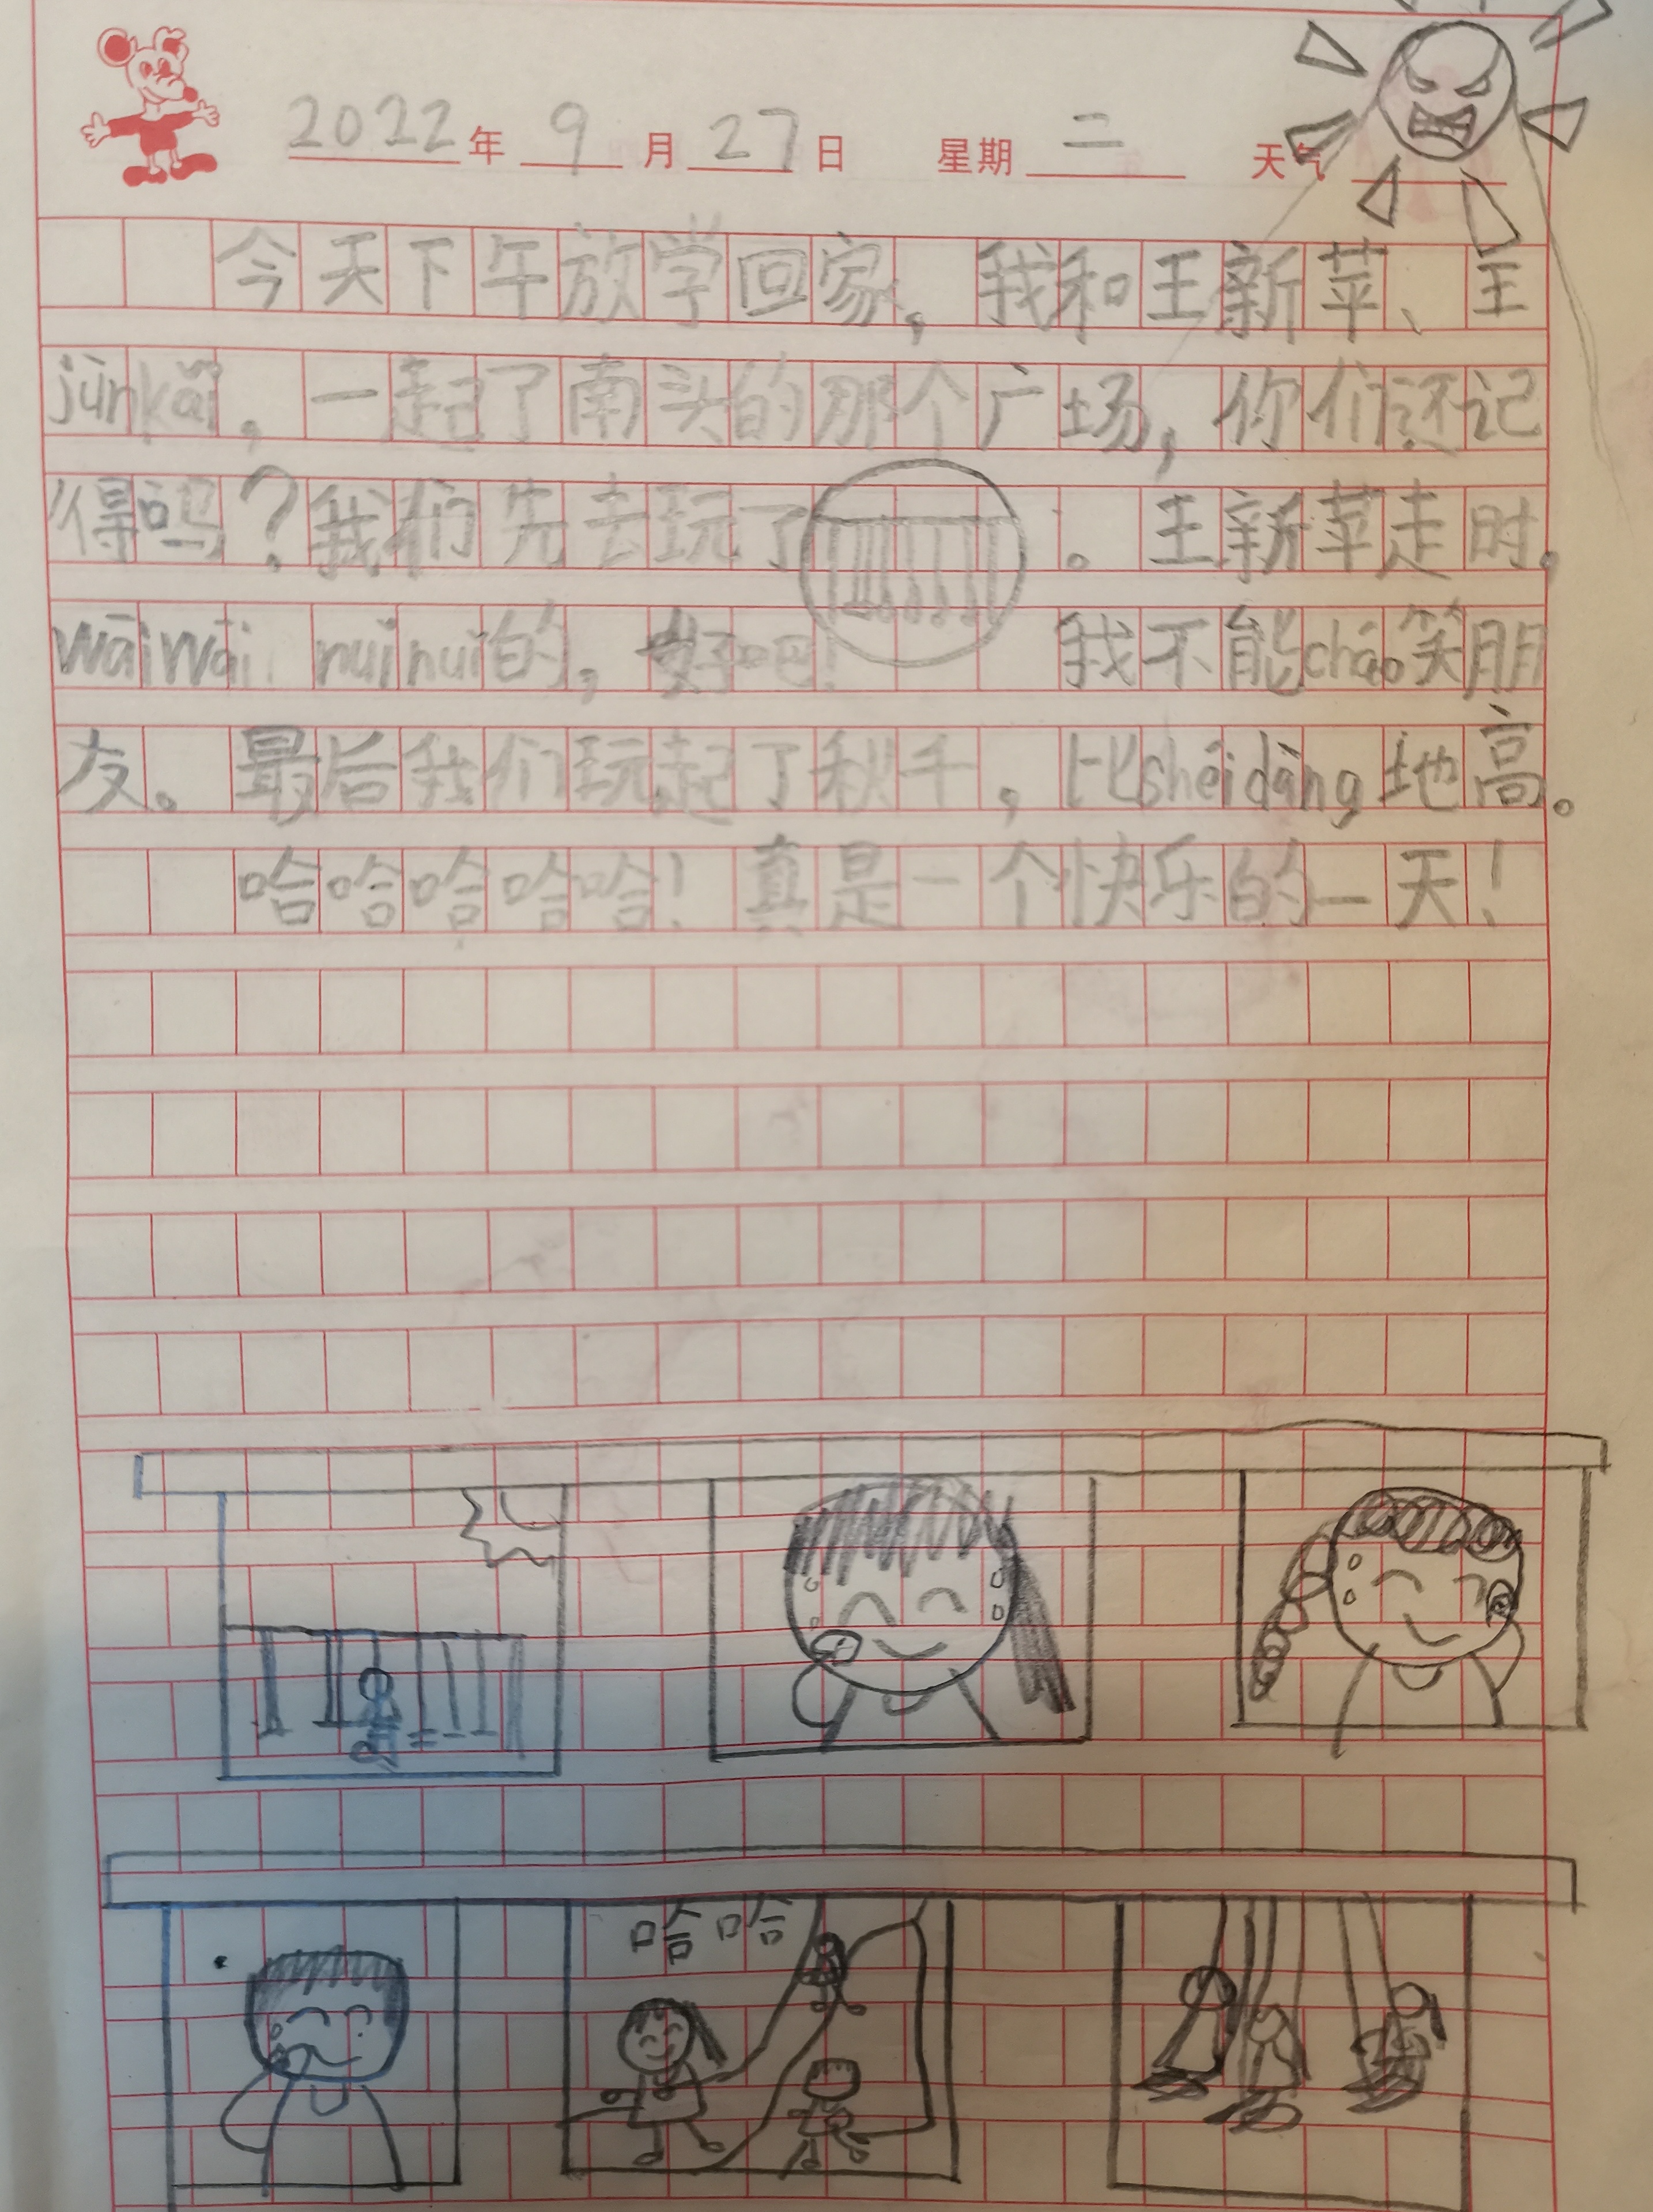 2022年 9 月 27 日 星期 二 天气
今天下午放学回家，我和王新苹、王
jūnkǎi，一起了南头的那个广场，你们还记
得吗？我们先去玩了。王新苹走时。
wāiwāi nuǐnuǐ的，好吧！我不能cháo笑朋
友。最后我们玩起了秋千，比shéidàng地高。
哈哈哈哈哈！真是一个快乐的一天！
哈哈